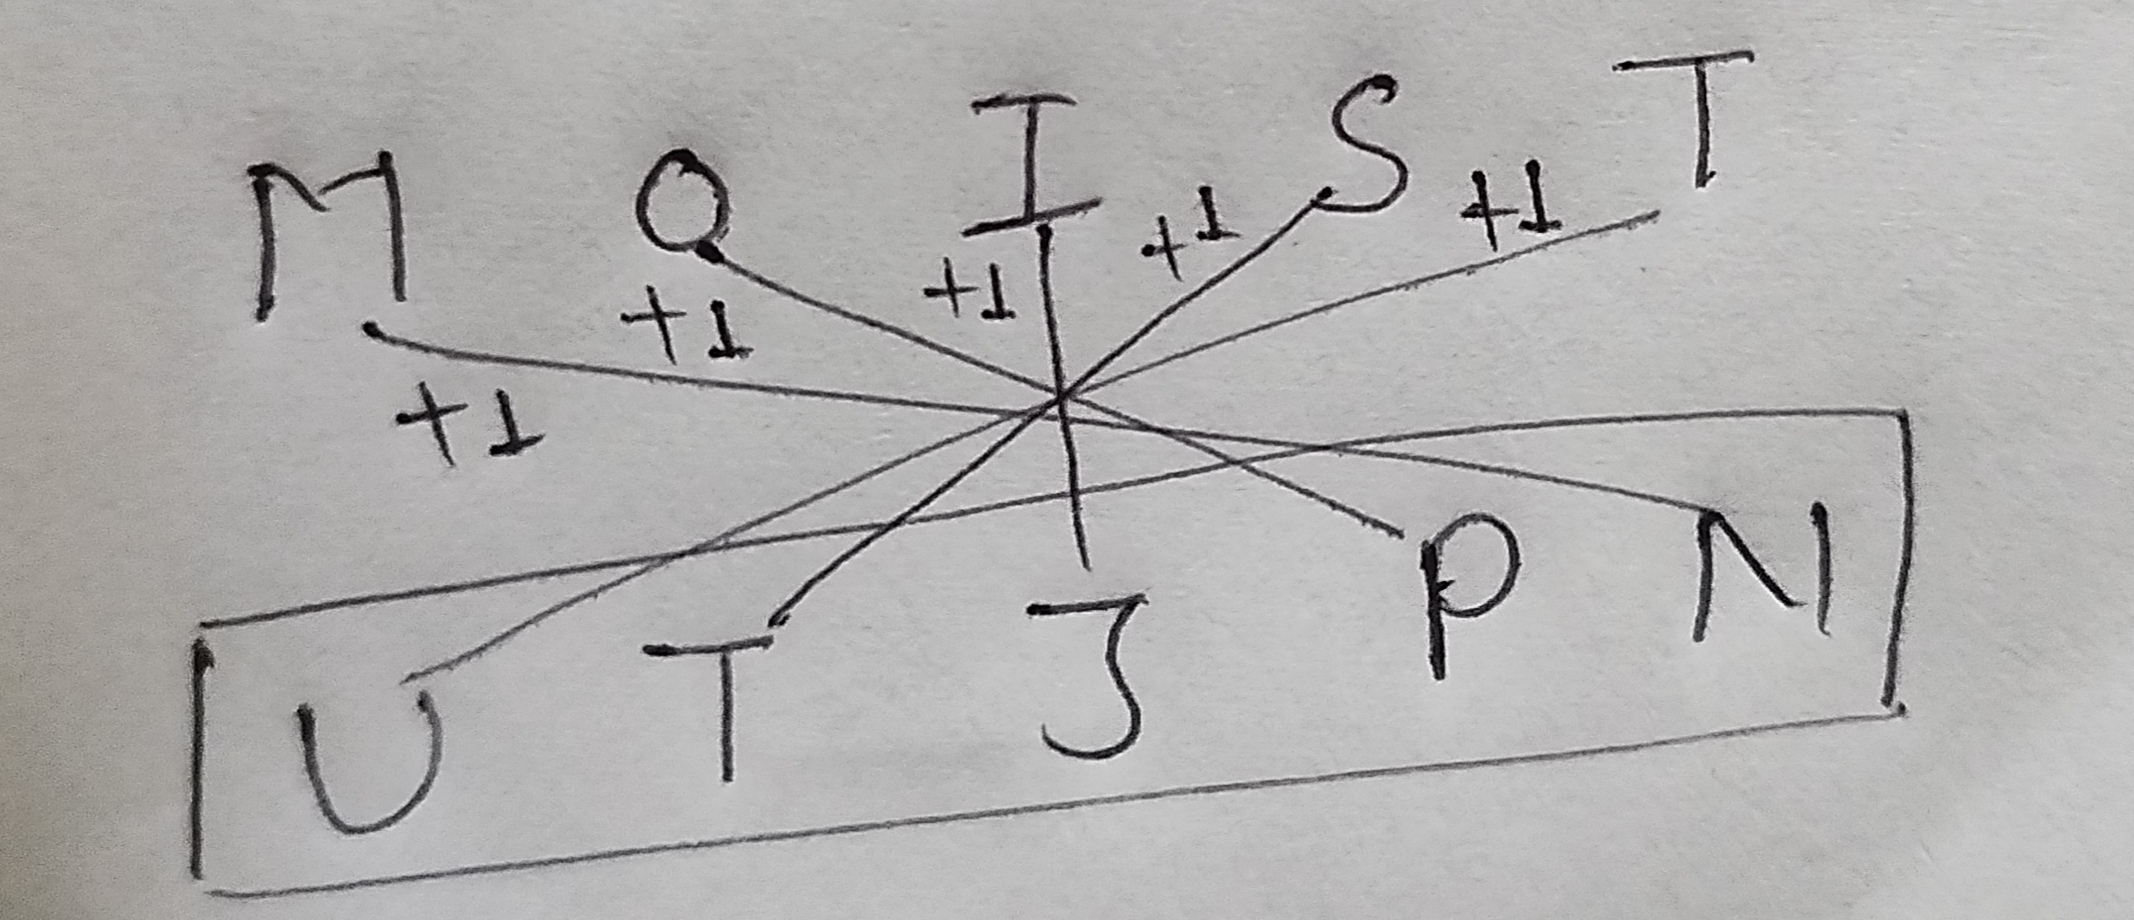 M O I S T
+1 +1 +1 +1 +1
U T J P N